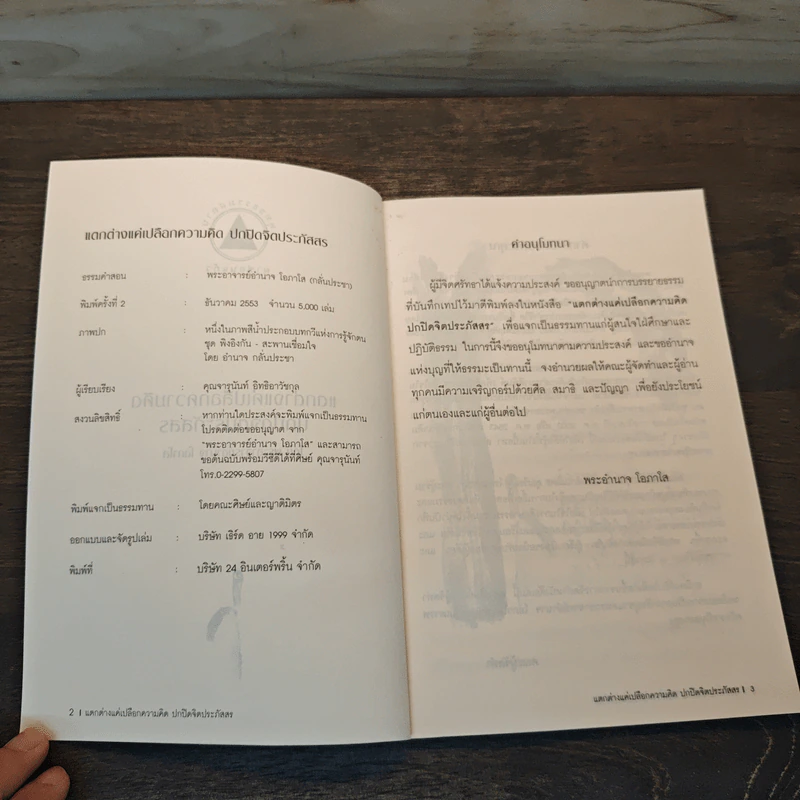 แตกต่างแค่เปลือกความคิด ปกปิดจิตประภัสสร
ธรรมคำสอน : พระอาจารย์อำนาจ โอภาโส (กลั่นประชา)
พิมพ์ครั้งที่ 2 : ธันวาคม 2553 จำนวน 5,000 เล่ม
ภาพปก : หนึ่งในภาพสีน้ำประกอบบทกวีแห่งการรู้จักตน
ชุด พิงอิงกัน - สะพานเชื่อมใจ
โดย อำนาจ กลั่นประชา
ผู้เรียบเรียง : คุณจารุนันท์ อิทธิอาวัชกุล
สงวนลิขสิทธิ์ : หากท่านใดประสงค์จะพิมพ์แจกเป็นธรรมทาน
โปรดติดต่อขออนุญาต จาก
"พระอาจารย์อำนาจ โอภาโส" และสามารถ
ขอต้นฉบับพร้อมวีซีดีได้ที่ศิษย์ คุณจารุนันท์
โทร.0-2299-5807
พิมพ์แจกเป็นธรรมทาน : โดยคณะศิษย์และญาติมิตร
ออกแบบและจัดรูปเล่ม : บริษัท เธิร์ด อาย 1999 จำกัด
พิมพ์ที่ : บริษัท 24 อินเตอร์พริ้น จำกัด
2 | แตกต่างแค่เปลือกความคิด ปกปิดจิตประภัสสร
คำอนุโมทนา
ผู้มีจิตศรัทธาได้แจ้งความประสงค์ ขออนุญาตนำการบรรยายธรรม
ที่บันทึกเทปไว้มาตีพิมพ์ลงในหนังสือ "แตกต่างแค่เปลือกความคิด
ปกปิดจิตประภัสสร" เพื่อแจกเป็นธรรมทานแก่ผู้สนใจใฝ่ศึกษาและ
ปฏิบัติธรรม ในการนี้จึงขออนุโมทนาตามความประสงค์ และขออำนาจ
แห่งบุญที่ให้ธรรมะเป็นทานนี้ จงอำนวยผลให้คณะผู้จัดทำและผู้อ่าน
ทุกคนมีความเจริญกอร์ปด้วยศีล สมาธิ และปัญญา เพื่อยังประโยชน์
แก่ตนเองและแก่ผู้อื่นต่อไป
พระอำนาจ โอภาโส
แตกต่างแค่เปลือกความคิด ปกปิดจิตประภัสสร | 3